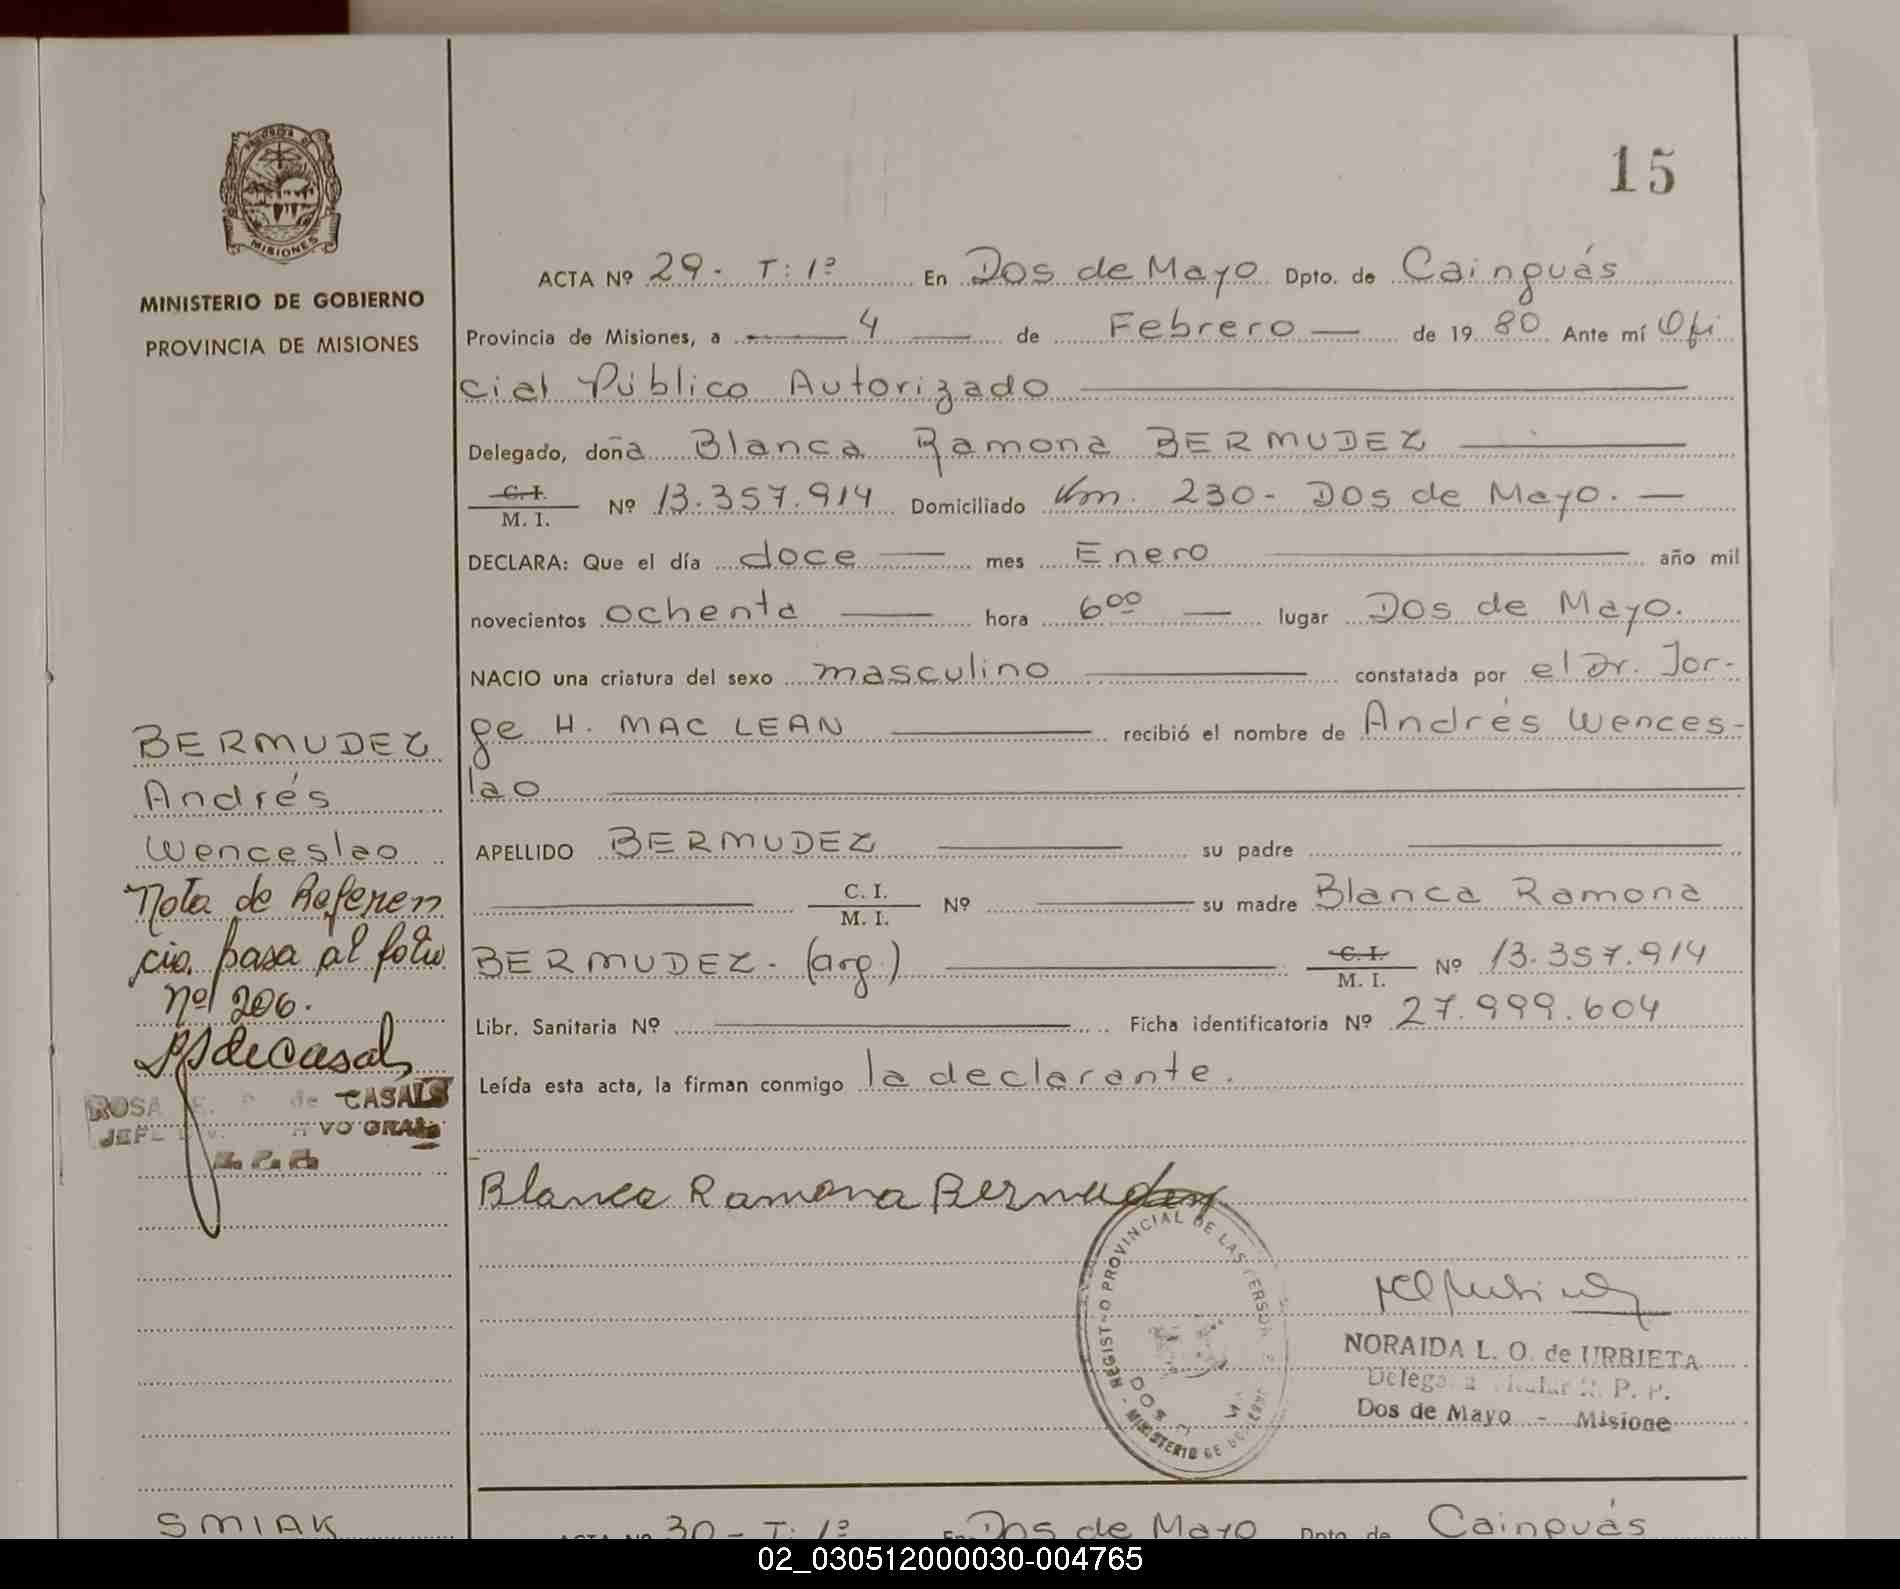 15
MISIONES
MINISTERIO DE GOBIERNO
PROVINCIA DE MISIONES
ACTA Nº 29- T: 1ª En Dos de Mayo Dpto. de Cainguás
Provincia de Misiones, a 4 de Febrero de 1980 Ante mí Ofi
cial Público Autorizado
Delegado, doña Blanca Ramona BERMUDEZ
C. I.
M. I. Nº 13.357.914 Domiciliado Km. 230- Dos de Mayo.
DECLARA: Que el día doce mes Enero año mil
novecientos ochenta hora 6⁰⁰ lugar Dos de Mayo.
NACIO una criatura del sexo masculino constatada por el Dr. Jor-
ge H. MAC LEAN recibió el nombre de Andrés Wences-
lao
APELLIDO BERMUDEZ su padre
C. I.
M. I. Nº su madre Blanca Ramona
BERMUDEZ- (arg.) C. I.
M. I. Nº 13.357.914
Libr. Sanitaria Nº Ficha identificatoria Nº 27.999.604
Leída esta acta, la firman conmigo la declarante.
Blanca Ramona Bermudez
BERMUDEZ
Andrés
Wenceslao
Nota de Referen
cia. pasa al folio
nº 206.
ROSA de CASALS
REGISTRO PROVINCIAL DE LAS PERSONAS
MINISTERIO DE GOBIERNO
NORAIDA L. O. de URBIETA
Dos de Mayo - Misione
SMIAK
ACTA Nº 30- T: 1ª En Dos de Mayo Dpto. de Cainguás
02_030512000030-004765